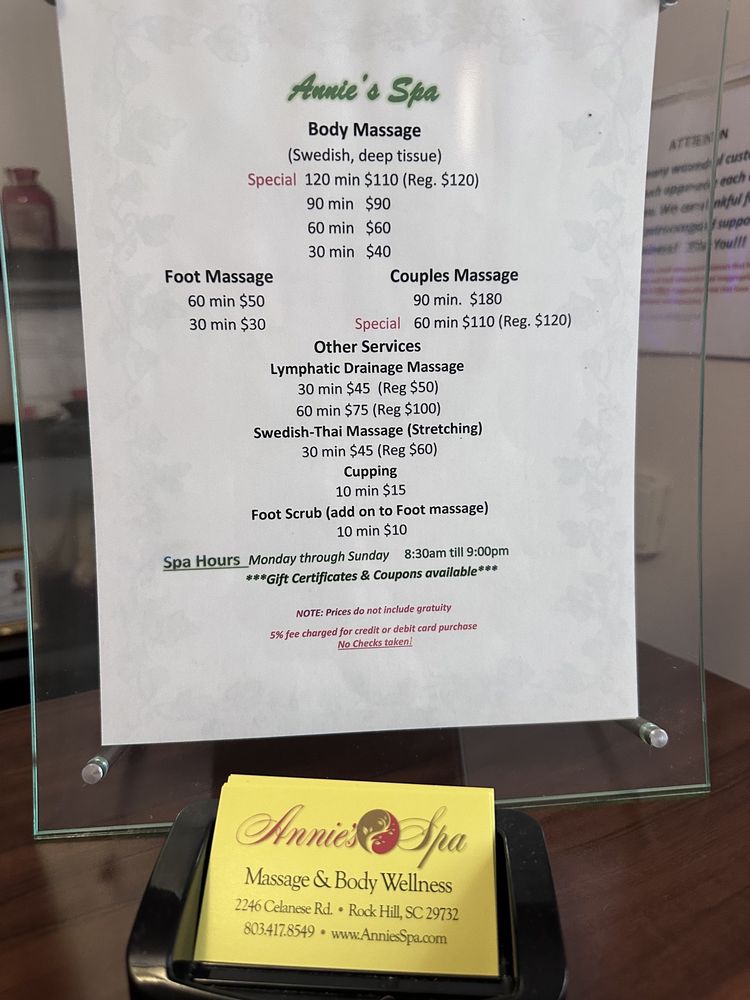 Annie's Spa
Body Massage
(Swedish, deep tissue)
Special 120 min $110 (Reg. $120)
90 min $90
60 min $60
30 min $40
Foot Massage
60 min $50
30 min $30
Couples Massage
90 min. $180
Special 60 min $110 (Reg. $120)
Other Services
Lymphatic Drainage Massage
30 min $45 (Reg $50)
60 min $75 (Reg $100)
Swedish-Thai Massage (Stretching)
30 min $45 (Reg $60)
Cupping
10 min $15
Foot Scrub (add on to Foot massage)
10 min $10
Spa Hours Monday through Sunday 8:30am till 9:00pm
***Gift Certificates & Coupons available***
NOTE: Prices do not include gratuity
5% fee charged for credit or debit card purchase
No Checks taken!
each
You!!!
Annie's Spa
Massage & Body Wellness
2246 Celanese Rd. • Rock Hill, SC 29732
803.417.8549 • www.AnniesSpa.com